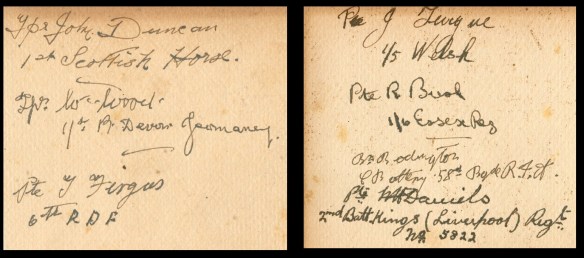 Tpr John Duncan
1st Scottish Horse.
Tpr. W. Wood.
1/1st R. Devon Yeomanry.
Pte T Fergus
6TH R D F
Pte J Tengue
1/5 Welsh
Pte R Bush
1/6 Essex Reg
Br Bodington
C Battery 58th Bgde R.F.A.
Pte Daniels
2nd Batt. Kings (Liverpool) Regt
NR 5822